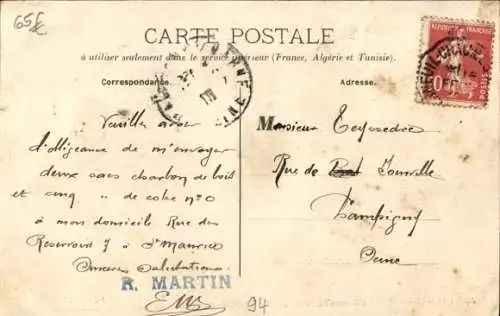 65f
CARTE POSTALE
à utiliser seulement dans le service intérieur (France, Algérie et Tunisie).
Correspondance.
Adresse.
Veuillez avoir
l'obligeance de m'envoyer
deux sacs charbon de bois
et cinq " de coke nº 0
à mon domicile Rue des
Reservoirs 7 à St Maurice
Sinceres Salutations
R. MARTIN
Monsieur Teyssedre
Rue de Joinville
Champigny
Seine
94
REPUBLIQUE FRANÇAISE
POSTES